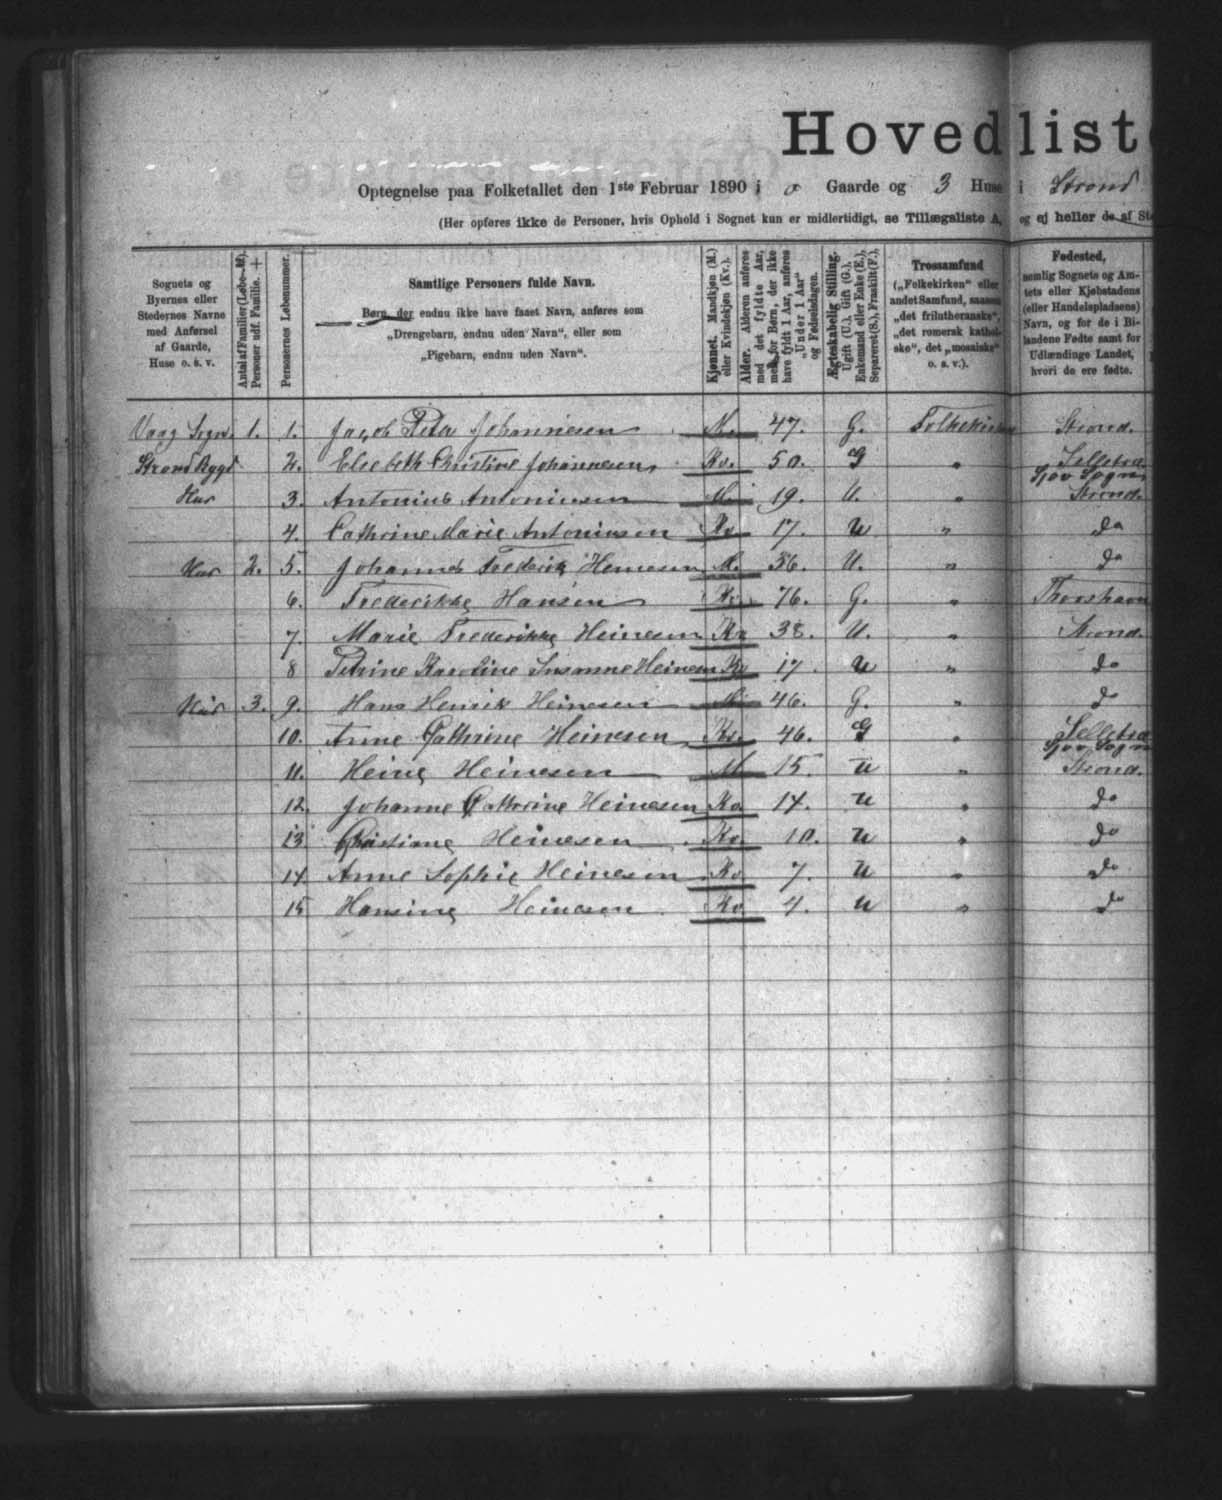 Hovedliste
Optegnelse paa Folketallet den 1ste Februar 1890 i o Gaarde og 3 Huse i Strond
(Her opføres ikke de Personer, hvis Ophold i Sognet kun er midlertidigt, se Tillægsliste A, og ej heller de af
Sognets og Byernes eller Stedernes Navne med Anførsel af Gaarde, Huse o. s. v.
Antal af Familier (Løbe-Nr). Personer udf. Familie. +
Personernes Løbenummer.
Samtlige Personers fulde Navn.
Børn, der endnu ikke have faaet Navn, anføres som
„Drengebarn, endnu uden Navn“, eller som
„Pigebarn, endnu uden Navn“.
Kjønnet. Mandkjøn (M.) eller Kvindekjøn (Kv.).
Alder. Alderen anføres med det fyldte Aar, men for Børn, der ikke have fyldt 1 Aar, anføres „Under 1 Aar“ og Fødselsdagen.
Ægteskabelig Stilling. Ugift (U.), Gift (G.), Enkemand eller Enke (E.), Separeret (S.), Fraskilt (F.).
Trossamfund („Folkekirken“ eller andet Samfund, saasom „det frilutheranske“, „det romersk katholske“, det „mosaiske“ o. s. v.).
Fødested, nemlig Sognets og Amtets eller Kjøbstadens (eller Handelspladsens) Navn, og for de i Bilandene Fødte samt for Udlændinge Landet, hvori de ere fødte.
Vaag Sogn 1. 1. Jacob Peter Johannesen M. 47. G. Folkekirken Strond.
Strond Bygd 2. Elsebeth Christine Johannesen Kv. 50. G „ Sjov Sogn
Hus 3. Antonius Antoniusen M. 19. U. „ Strond.
4. Cathrine Marie Antoniusen Kv 17. U „ do
Hus 2. 5. Johannes Frederik Heinesen M. 36. U. „ do
6. Frederikke Hansen Kv. 76. G. „ Thorshavn
7. Marie Frederikke Heinesen Kv 38. U. „ Strond.
8 Petrine Karoline Susanne Heinesen Kv 17 U „ do
Hus 3. 9. Hans Henrik Heinesen M. 46. G. „ do
10. Anne Cathrine Heinesen Kv. 46. G „ Sjov Sogn
11. Heine Heinesen M 15. U „ Strond.
12. Johanne Cathrine Heinesen Kv 14. U „ do
13 Christiane Heinesen Kv. 10. U „ do
14 Anne Sophie Heinesen Kv 7. U „ do
15 Hansine Heinesen Kv 4. U „ do